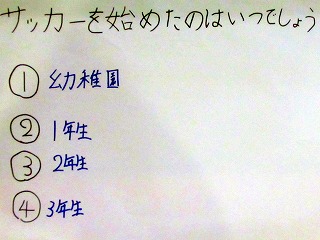 サッカーを始めたのはいつでしょう
① 幼稚園
② 1年生
③ 2年生
④ 3年生